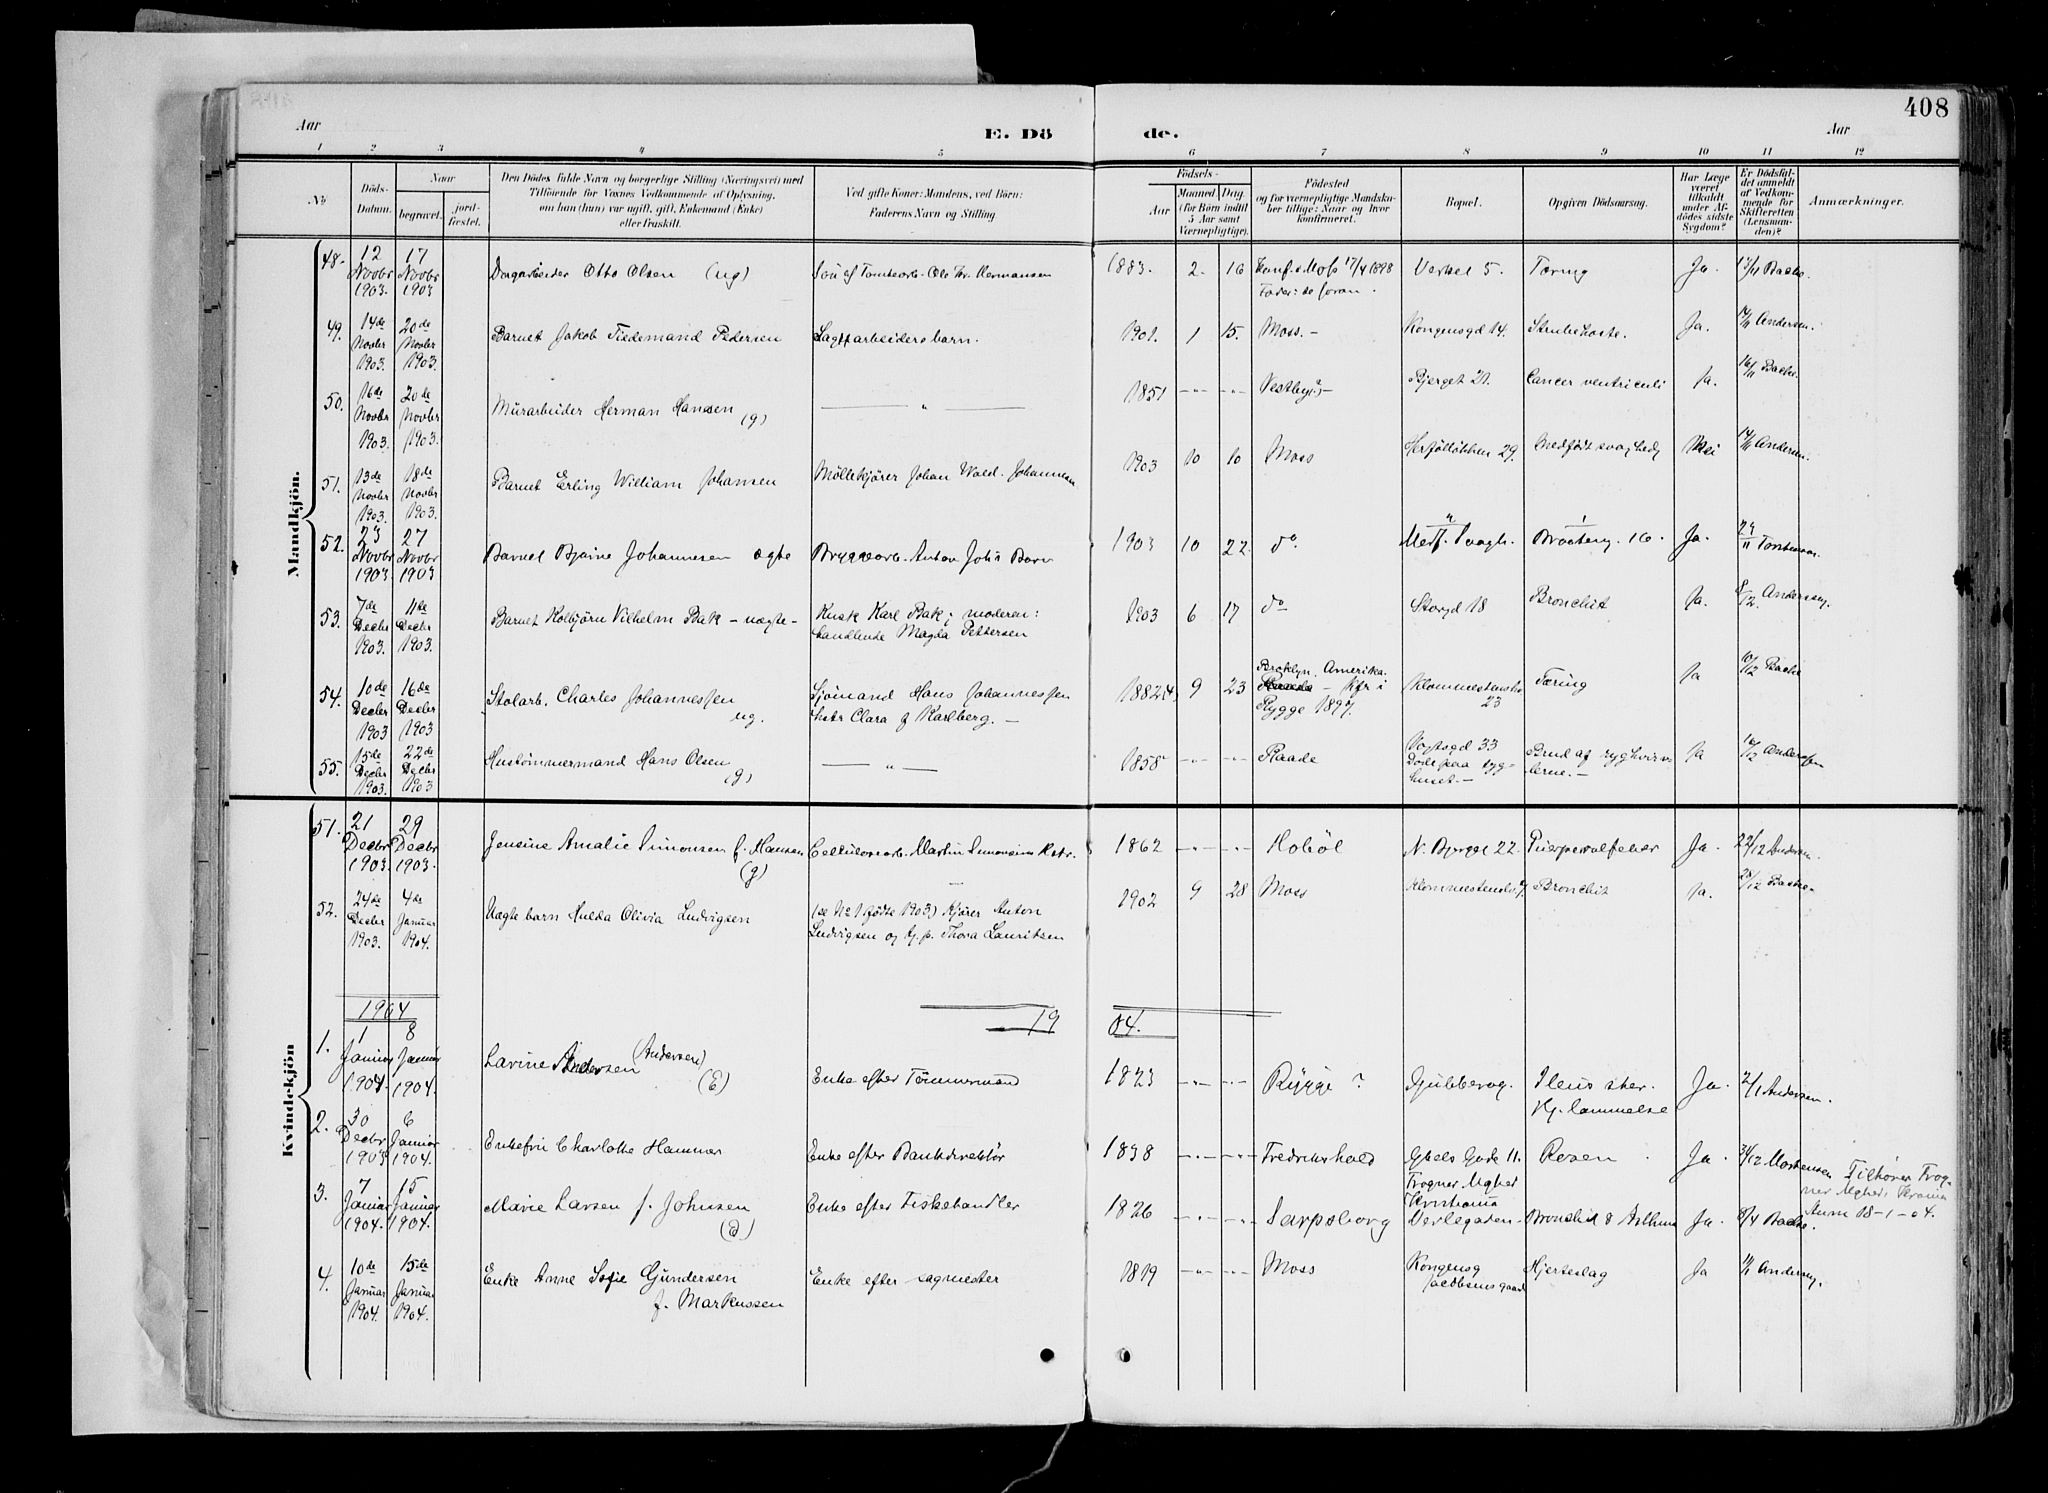 408
Aar
E. Dö
de.
Aar
1 2 3 4 5 6 7 8 9 10 11 12
No
Döds-
Datum.
Naar
begravet.
jord-
fæstet.
Den Dödes fulde Navn og borgerlige Stilling (Næringsvei) med
Tilföiende for Voxnes Vedkommende af Oplysning,
om han (hun) var ugift, gift, Enkemand (Enke)
eller fraskilt.
Ved gifte Koner: Mandens, ved Börn:
Faderens Navn og Stilling
Födsels-
Aar
Maaned Dag
(for Börn indtil
5 Aar samt
Værnepligtige).
Födested
og for værnepligtige Mandsku-
ber tillige: Naar og hvor
konfirmeret.
Bopæl.
Opgiven Dödsaarsag.
Har Læge
været
tilkaldt
under Af-
dödes sidste
Sygdom?
Er Dödsfal-
det anmeldt
af Vedkom-
mende for
Skifteretten
(Lensman-
den)?
Anmærkninger.
Mandkjön.
48. 12 Novbr 1903. 17 Novbr 1903 Dagarbeider Otto Olsen (ug) Sön af Tomtearb. Ole Kr. Hermansen 1883. 2. 16 Konf. i Moss 17/4 1898 Verket 5. Tæring Ja. 13/11 Bache.
49. 14de Novbr 1903. 20de Novbr 1903. Barnet Jakob Tiedemand Pedersen Sagarbeiders barn. 1901. 1 15. Moss. – Kongensgd 14. Strubehoste. Ja. 14/11 Andersen.
50. 16de Novbr 1903. 20de Novbr 1903. Murarbeider Herman Hansen (g) — " — 1851 -"- -"- Vestby(?) – Bjerget 21. Cancer ventriculi Ja. 16/11 Bache.
51. 13de Novbr 1903. 18de Novbr 1903. Barnet Erling William Johansen Möllekjörer Johan Wald. Johannesen 1903 10 10 Moss 29. Medfödt svaghed Nei 14/11 Andersen.
52. 23 Novbr 1903 27 Novbr 1903 Barnet Bjarne Johannesen ægte Bryggearb. Anton Joh's Barn 1903 10 22. do. Medf. Svagh. Braateng. 16. Ja. 24/11
53. 7de Decbr 1903. 11de Decbr 1903. Barnet Kolbjörn Vilhelm Bak – uægte – Kusk Karl Bak; moderen:
handlende Magda Pettersen 1903 6 17 do Storgd 18 Bronchit Ja. 8/12. Andersen.
54. 10de Decbr 1903 16de Decbr 1903 Stolarb. Charles Johannessen ug. Sjömand Hans Johannessen
hstr Clara f Karlberg. – 1882(4) 9 23 Broklyn. Amerika.
Raade – Kfr i
Rygge 1897. 23 Tæring Ja 10/12 Bache
55. 15de Decbr 1903. 22de Decbr 1903 Hustömmermand Hans Olsen (g) — " — 1858 -"- -"- Raade Vogtsgd 33
Döde paa syg-
huset. – Brud af ryghvirv-
lerne. – Ja 16/12 Anderssen
Kvindekjön
51. 21 Decbr 1903. 29 Decbr 1903. Jensine Amalie Simonsen f. Hansen (g) Cellulosearb. Martin Simonsens Hstr. 1862 -"- -"- Hoböl N. Bjerget 22. Puerperalfeber Ja. 22/12 Andersen.
52. 24de Decbr 1903. 4de Januar 1904. Uægte barn Hulda Olivia Ludvigsen (se No 1 födte 1903) Kjörer Anton
Ludvigsen og tj. p. Thora Lauritsen 1902 9 28 Moss Bronchit Ja. 28/12 Bache
1904
19 04.
1. 1 Januar 1904. 8 Januar 1904. Lavine Andersen (Andersen) (E) Enke efter Tömmermand 1823 -"- -"- Rygge? Gjulsberg. Ileus
Ja. 2/1 Andersen.
2. 30 Decbr 1903 6 Januar 1904. Enkefru Charlotte Hammer Enke efter Bankdirektör 1838 -"- -"- Fredrikshald Gyels Gade 11.
Frogner Mghed
Kristiania Rosen Ja. 31/12 Mortensen Tilhörer Frog-
ner Mghed, Krania
Anm 18-1-04.
3. 7 Januar 1904. 15 Januar 1904. Marie Larsen f. Johnsen (E) Enke efter Fiskehandler 1826 -"- -"- Sarpsborg Værlegaden Bronchit & Asthma Ja. Bache.
4. 10de Januar 1904. 15de Januar 1904. Enke Anne Sofie Gundersen
f. Markussen Enke efter sagmester 1819 -"- -"- Moss Kongensg
Jacobsensgaard Hjerteslag Ja 11/1 Andersen.